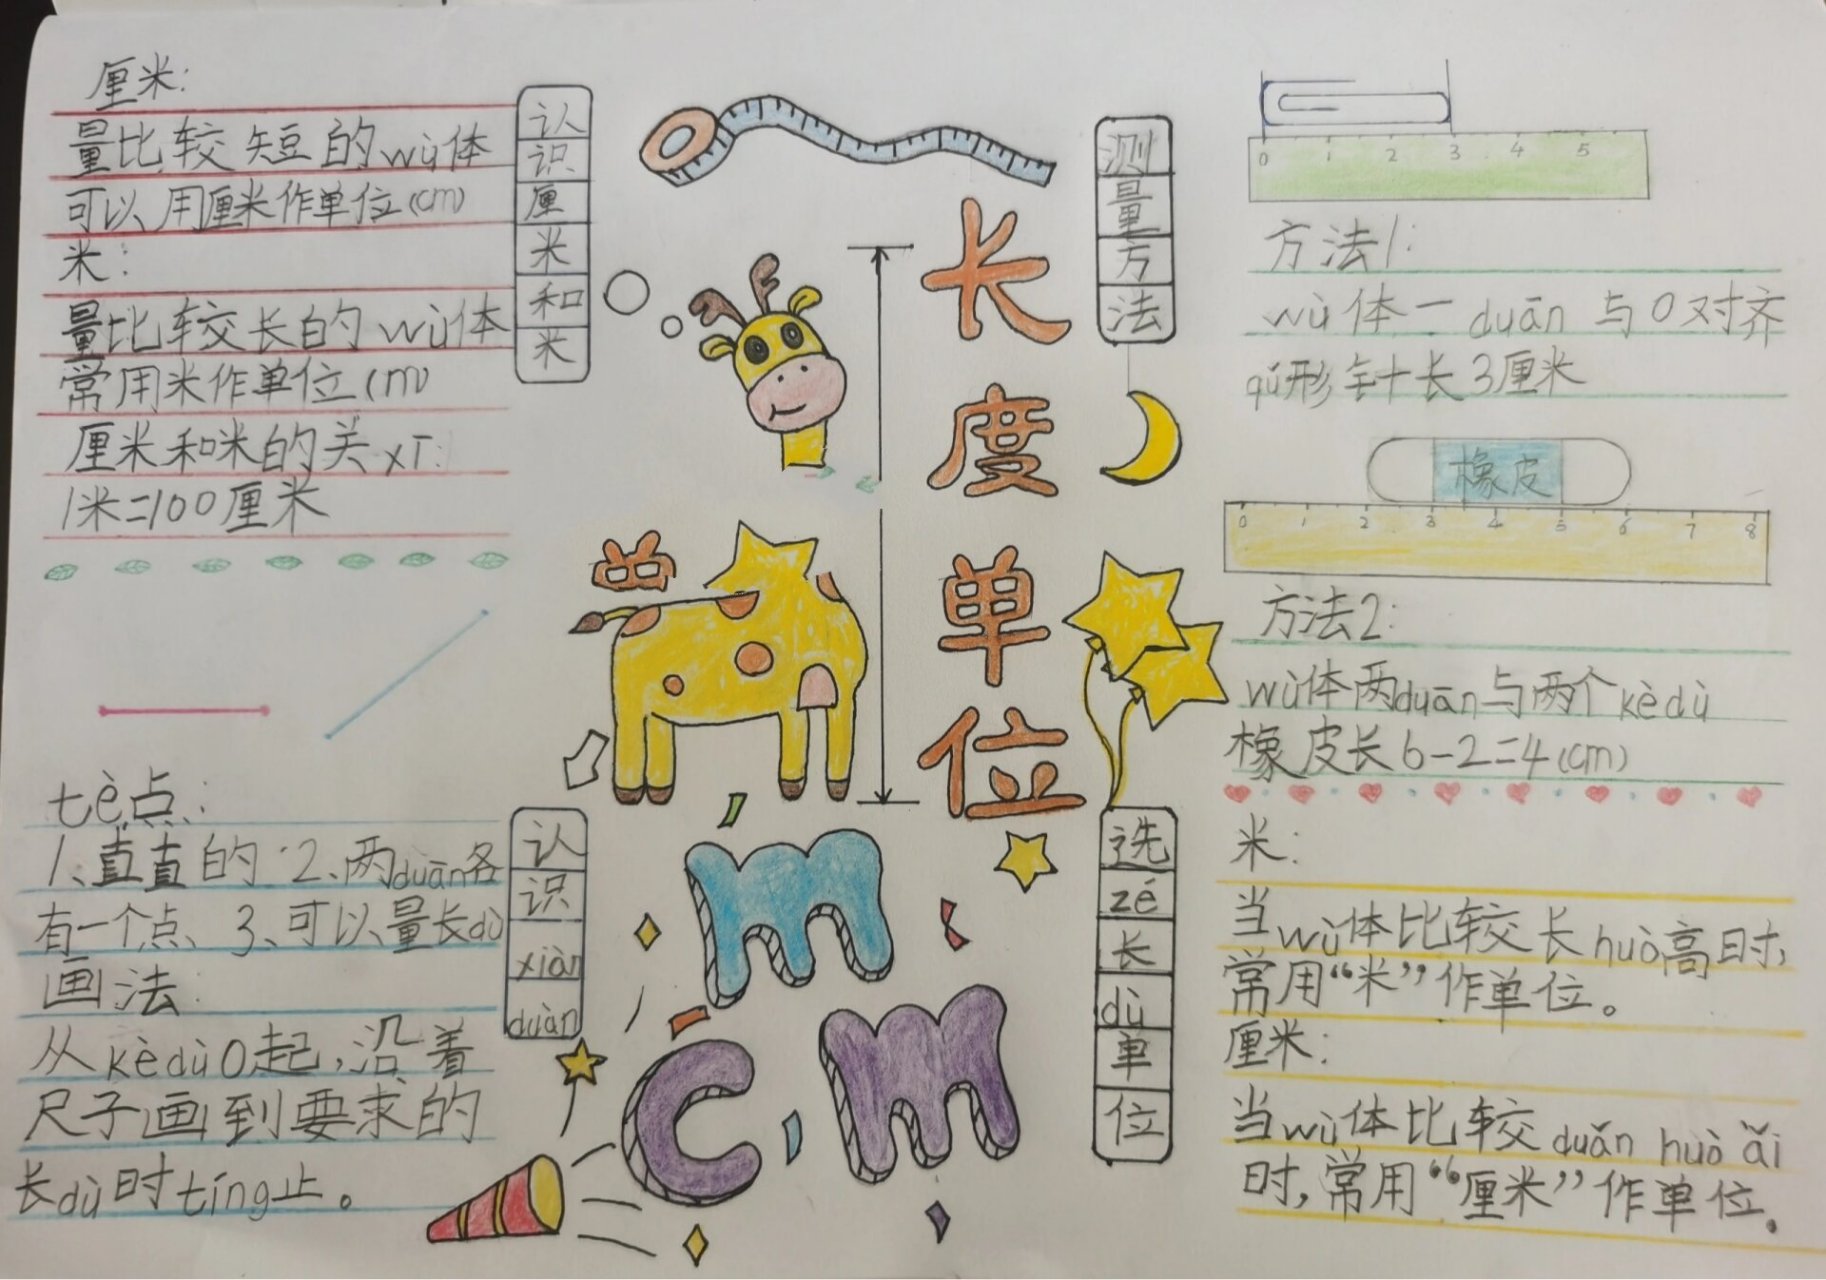 厘米:
量比较短的wù体
可以用厘米作单位(cm)
米:
量比较长的wù体
常用米作单位(m)
厘米和米的关xì:
1米=100厘米
认识厘米和米
tè点:
1、直直的 2、两duān各
有一个点、3、可以量长dù
画法:
从kèdù0起,沿着
尺子画到要求的
长dù时tíng止。
认识xiànduàn
长度单位
m
cm
测量方法
0 1 2 3 4 5
方法1:
wù体一duān与0对齐
qū形针长3厘米
橡皮
0 1 2 3 4 5 6 7 8
方法2:
wù体两duān与两个kèdù
橡皮长6-2=4(cm)
选zé长dù单位
米:
当wù体比较长huò高时,
常用“米”作单位。
厘米:
当wù体比较duǎn huò ǎi
时,常用“厘米”作单位。